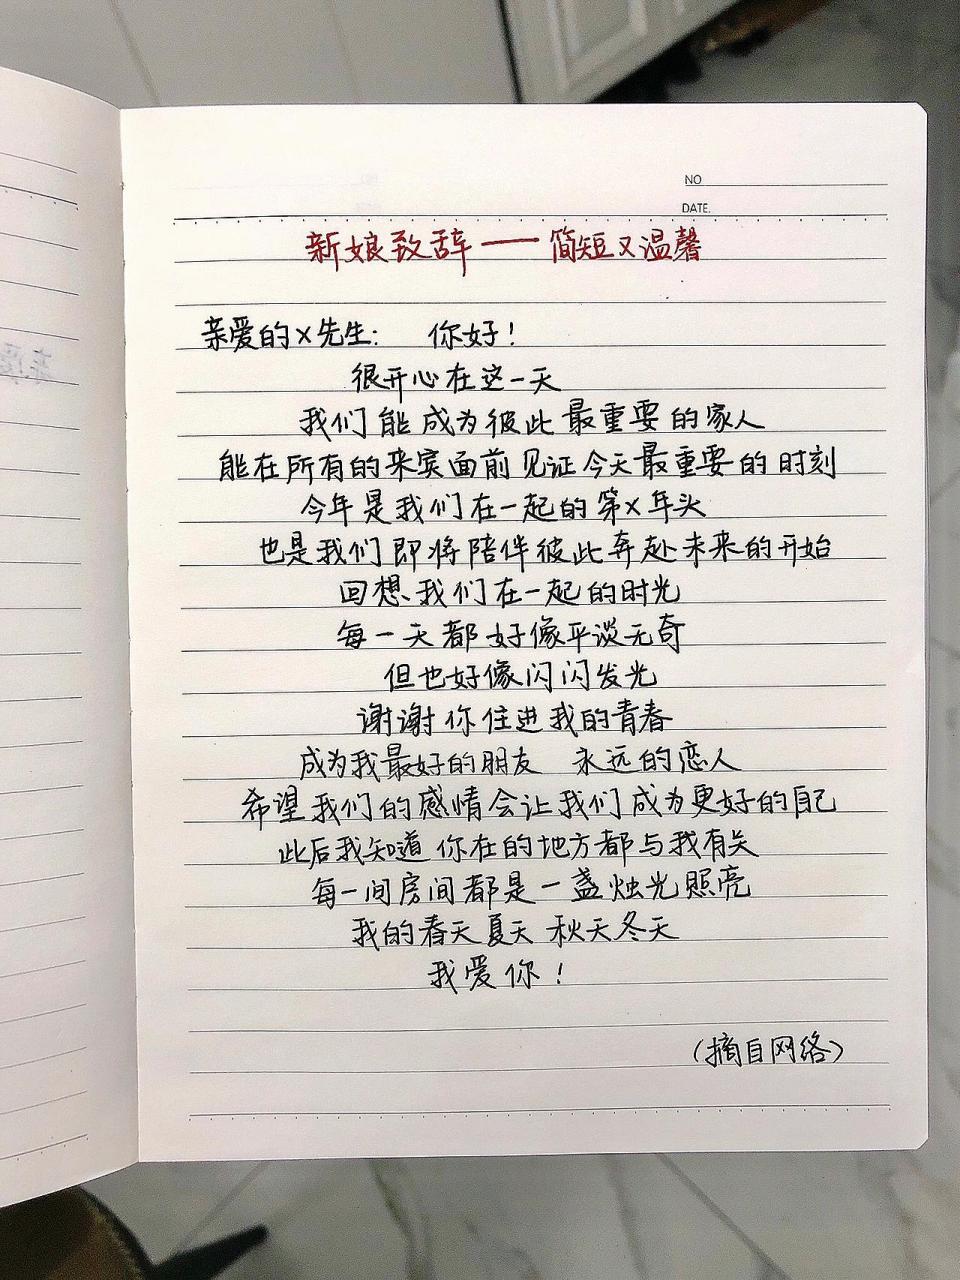 NO
DATE.
新娘致辞——简短又温馨
亲爱的x先生: 你好!
很开心在这一天
我们能成为彼此最重要的家人
能在所有的来宾面前见证今天最重要的时刻
今年是我们在一起的第x年头
也是我们即将陪伴彼此奔赴未来的开始
回想我们在一起的时光
每一天都好像平淡无奇
但也好像闪闪发光
谢谢你住进我的青春
成为我最好的朋友 永远的恋人
希望我们的感情会让我们成为更好的自己
此后我知道你在的地方都与我有关
每一间房间都是一盏烛光照亮
我的春天夏天秋天冬天
我爱你!
(摘自网络)